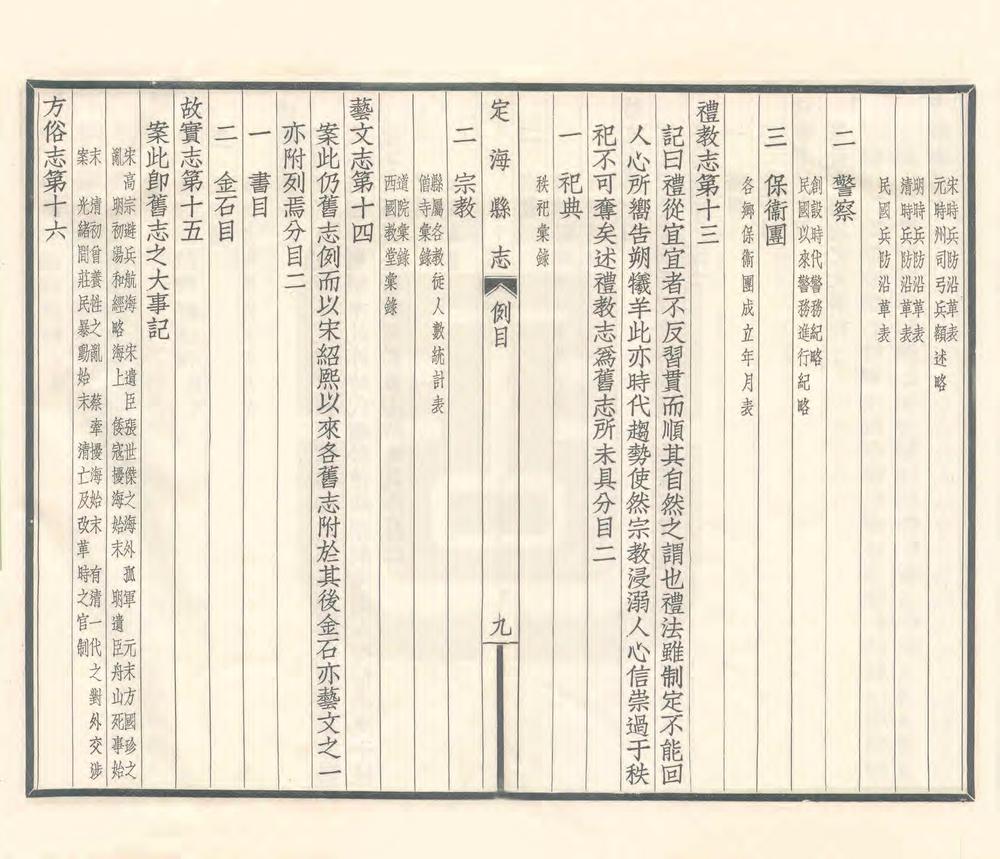 宋時兵防沿革表
元時州司弓兵額述略
明時兵防沿革表
清時兵防沿革表
民國兵防沿革表
二　警察
創設時代警務紀略
民國以來警務進行紀略
三　保衞團
各鄉保衞團成立年月表
禮教志第十三
記曰禮從宜宜者不反習貫而順其自然之謂也禮法雖制定不能回
人心所嚮告朔犧羊此亦時代趨勢使然宗教浸溺人心信崇過于秩
祀不可奪矣述禮教志爲舊志所未具分目二
一　祀典
秩祀彙錄
定海縣志
例目
九
二　宗教
縣屬各教徒人數統計表
僧寺彙錄
道院彙錄
西國教堂彙錄
藝文志第十四
案此仍舊志例而以宋紹熙以來各舊志附於其後金石亦藝文之一
亦附列焉分目二
一　書目
二　金石目
故實志第十五
案此卽舊志之大事記
宋高宗避兵航海　宋遺臣張世傑之海外孤軍　元末方國珍之
亂　明初湯和經略海上　倭寇擾海始末　明遺臣舟山死事始
末　清初曾養性之亂　蔡牽擾海始末　有清一代之對外交涉
案　光緒間莊民暴動始末　清亡及改革時之官制
方俗志第十六